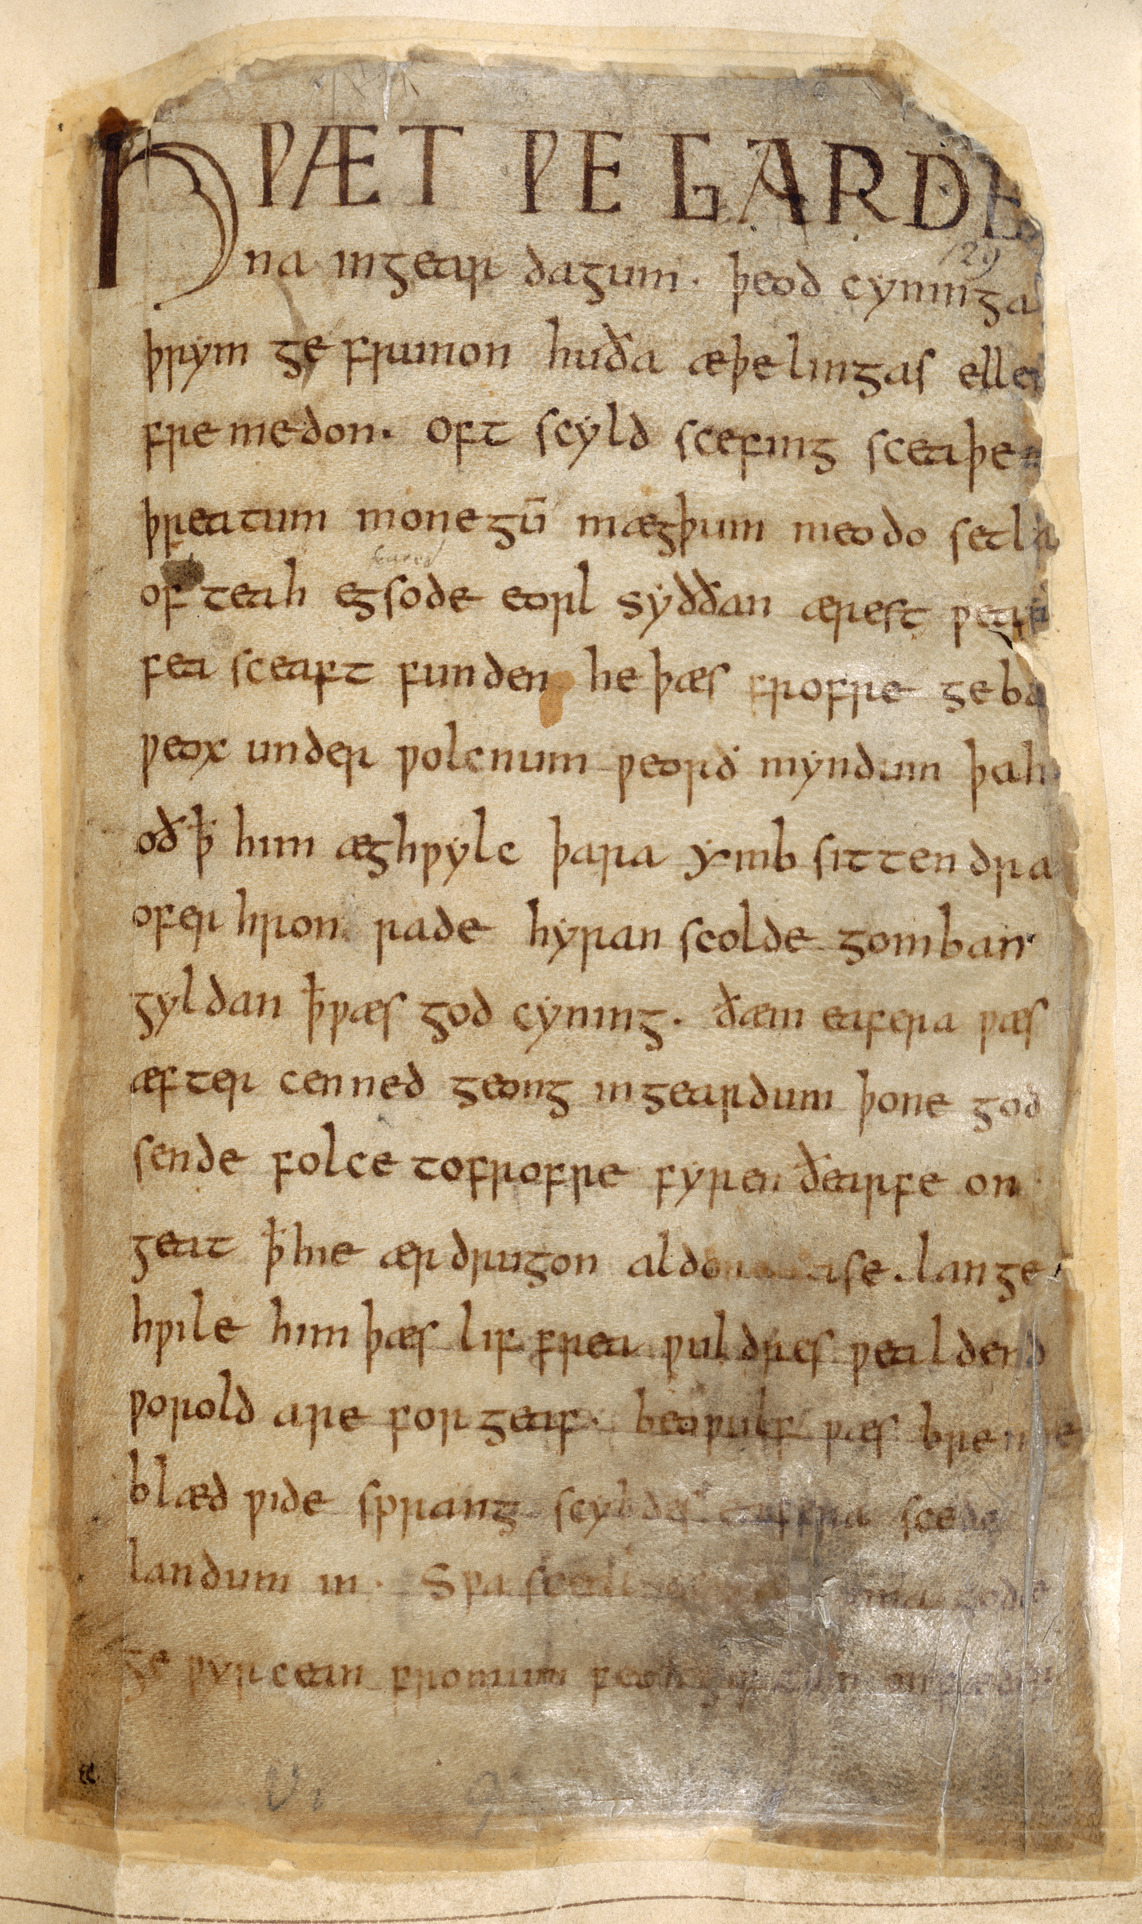 HǷÆT ǷE GARDE
na ingear dagum. þeod cyninga
þrym ge frunon huða æþelingas elle
fremedon. oft scyld scefing sceaþe
þreatum monegū mægþum meodo setla
of teah egsode eorl syððan ærest ƿear
fea sceaft funden he þæs frofre geba
ƿeox under ƿolcnum ƿeorð myndum þah
oð ꝥ him æghƿylc þara ymb sittendra
ofer hron rade hyran scolde gomban
gyldan ꝥ ƿæs god cyning. ðæm eafera ƿæs
æfter cenned geong in geardum þone god
sende folce tofrofre fyren ðearfe on
geat ꝥ hie ær drugon aldor ase. lange
hƿile him þæs lif frea ƿuldres ƿealdend
ƿorold are for geaf. beoƿulf ƿæs breme
blæd ƿide sprang scyldes eafera scede
landum in. Sƿa sceal ma gode
ge ƿyrcean fromum feoh giftum
129